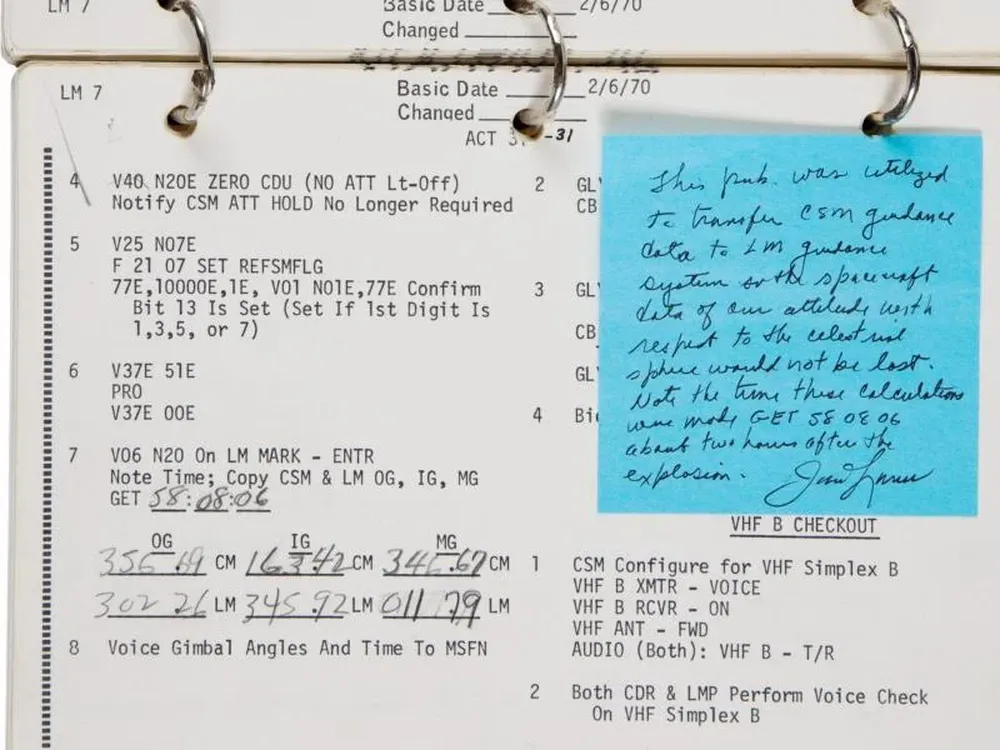 LM 7
Basic Date 2/6/70
Changed
LM 7
Basic Date 2/6/70
Changed
ACT 3 -31
4 V40 N20E ZERO CDU (NO ATT Lt-Off)
Notify CSM ATT HOLD No Longer Required
5 V25 N07E
F 21 07 SET REFSMFLG
77E,10000E,1E, V01 N01E,77E Confirm
Bit 13 Is Set (Set If 1st Digit Is
1,3,5, or 7)
6 V37E 51E
PRO
V37E 00E
7 V06 N20 On LM MARK - ENTR
Note Time; Copy CSM & LM OG, IG, MG
GET 58:08:06
OG IG MG
356 69 CM 163.42 CM 346.67 CM
302 26 LM 345.92 LM 011 79 LM
8 Voice Gimbal Angles And Time To MSFN
2 GLY
CB
3 GLY
CB
GLY
4
This pub. was utilized
to transfer CSM guidance
data to LM guidance
system so the spacecraft
data of our attitude with
respect to the celestial
sphere would not be lost.
Note the time these calculations
were made GET 58 08 06
about two hours after the
explosion.
VHF B CHECKOUT
1 CSM Configure for VHF Simplex B
VHF B XMTR - VOICE
VHF B RCVR - ON
VHF ANT - FWD
AUDIO (Both): VHF B - T/R
2 Both CDR & LMP Perform Voice Check
On VHF Simplex B